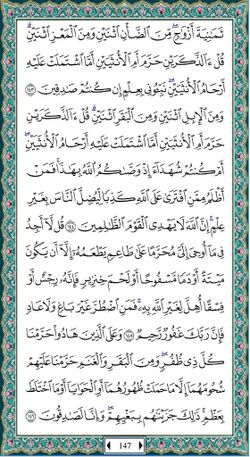 ثَمَٰنِيَةَ أَزْوَٰجٍ ۖ مِّنَ ٱلضَّأْنِ ٱثْنَيْنِ وَمِنَ ٱلْمَعْزِ ٱثْنَيْنِ ۗ
قُلْ ءَآلذَّكَرَيْنِ حَرَّمَ أَمِ ٱلْأُنثَيَيْنِ أَمَّا ٱشْتَمَلَتْ عَلَيْهِ
أَرْحَامُ ٱلْأُنثَيَيْنِ ۖ نَبِّـُٔونِى بِعِلْمٍ إِن كُنتُمْ صَٰدِقِينَ ١٤٣
وَمِنَ ٱلْإِبِلِ ٱثْنَيْنِ وَمِنَ ٱلْبَقَرِ ٱثْنَيْنِ ۗ قُلْ ءَآلذَّكَرَيْنِ
حَرَّمَ أَمِ ٱلْأُنثَيَيْنِ أَمَّا ٱشْتَمَلَتْ عَلَيْهِ أَرْحَامُ ٱلْأُنثَيَيْنِ ۖ
أَمْ كُنتُمْ شُهَدَآءَ إِذْ وَصَّىٰكُمُ ٱللَّهُ بِهَٰذَا ۚ فَمَنْ
أَظْلَمُ مِمَّنِ ٱفْتَرَىٰ عَلَى ٱللَّهِ كَذِبًا لِّيُضِلَّ ٱلنَّاسَ بِغَيْرِ
عِلْمٍ ۗ إِنَّ ٱللَّهَ لَا يَهْدِى ٱلْقَوْمَ ٱلظَّٰلِمِينَ ١٤٤ قُل لَّآ أَجِدُ
فِى مَآ أُوحِىَ إِلَىَّ مُحَرَّمًا عَلَىٰ طَاعِمٍ يَطْعَمُهُۥٓ إِلَّآ أَن يَكُونَ
مَيْتَةً أَوْ دَمًا مَّسْفُوحًا أَوْ لَحْمَ خِنزِيرٍ فَإِنَّهُۥ رِجْسٌ أَوْ
فِسْقًا أُهِلَّ لِغَيْرِ ٱللَّهِ بِهِۦ ۚ فَمَنِ ٱضْطُرَّ غَيْرَ بَاغٍ وَلَا عَادٍ
فَإِنَّ رَبَّكَ غَفُورٌ رَّحِيمٌ ١٤٥ وَعَلَى ٱلَّذِينَ هَادُوا۟ حَرَّمْنَا
كُلَّ ذِى ظُفُرٍ ۖ وَمِنَ ٱلْبَقَرِ وَٱلْغَنَمِ حَرَّمْنَا عَلَيْهِمْ
شُحُومَهُمَآ إِلَّا مَا حَمَلَتْ ظُهُورُهُمَآ أَوِ ٱلْحَوَايَآ أَوْ مَا ٱخْتَلَطَ
بِعَظْمٍ ۚ ذَٰلِكَ جَزَيْنَٰهُم بِبَغْيِهِمْ ۖ وَإِنَّا لَصَٰدِقُونَ ١٤٦
147